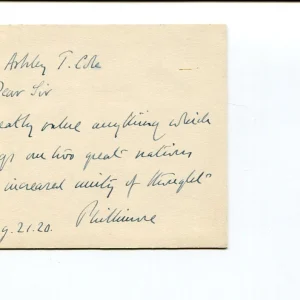 Ashley T. Cole
Dear Sir
eatly value anything which
gs our two great nations
increased unity of thought
g. 21. 20. Phillimore